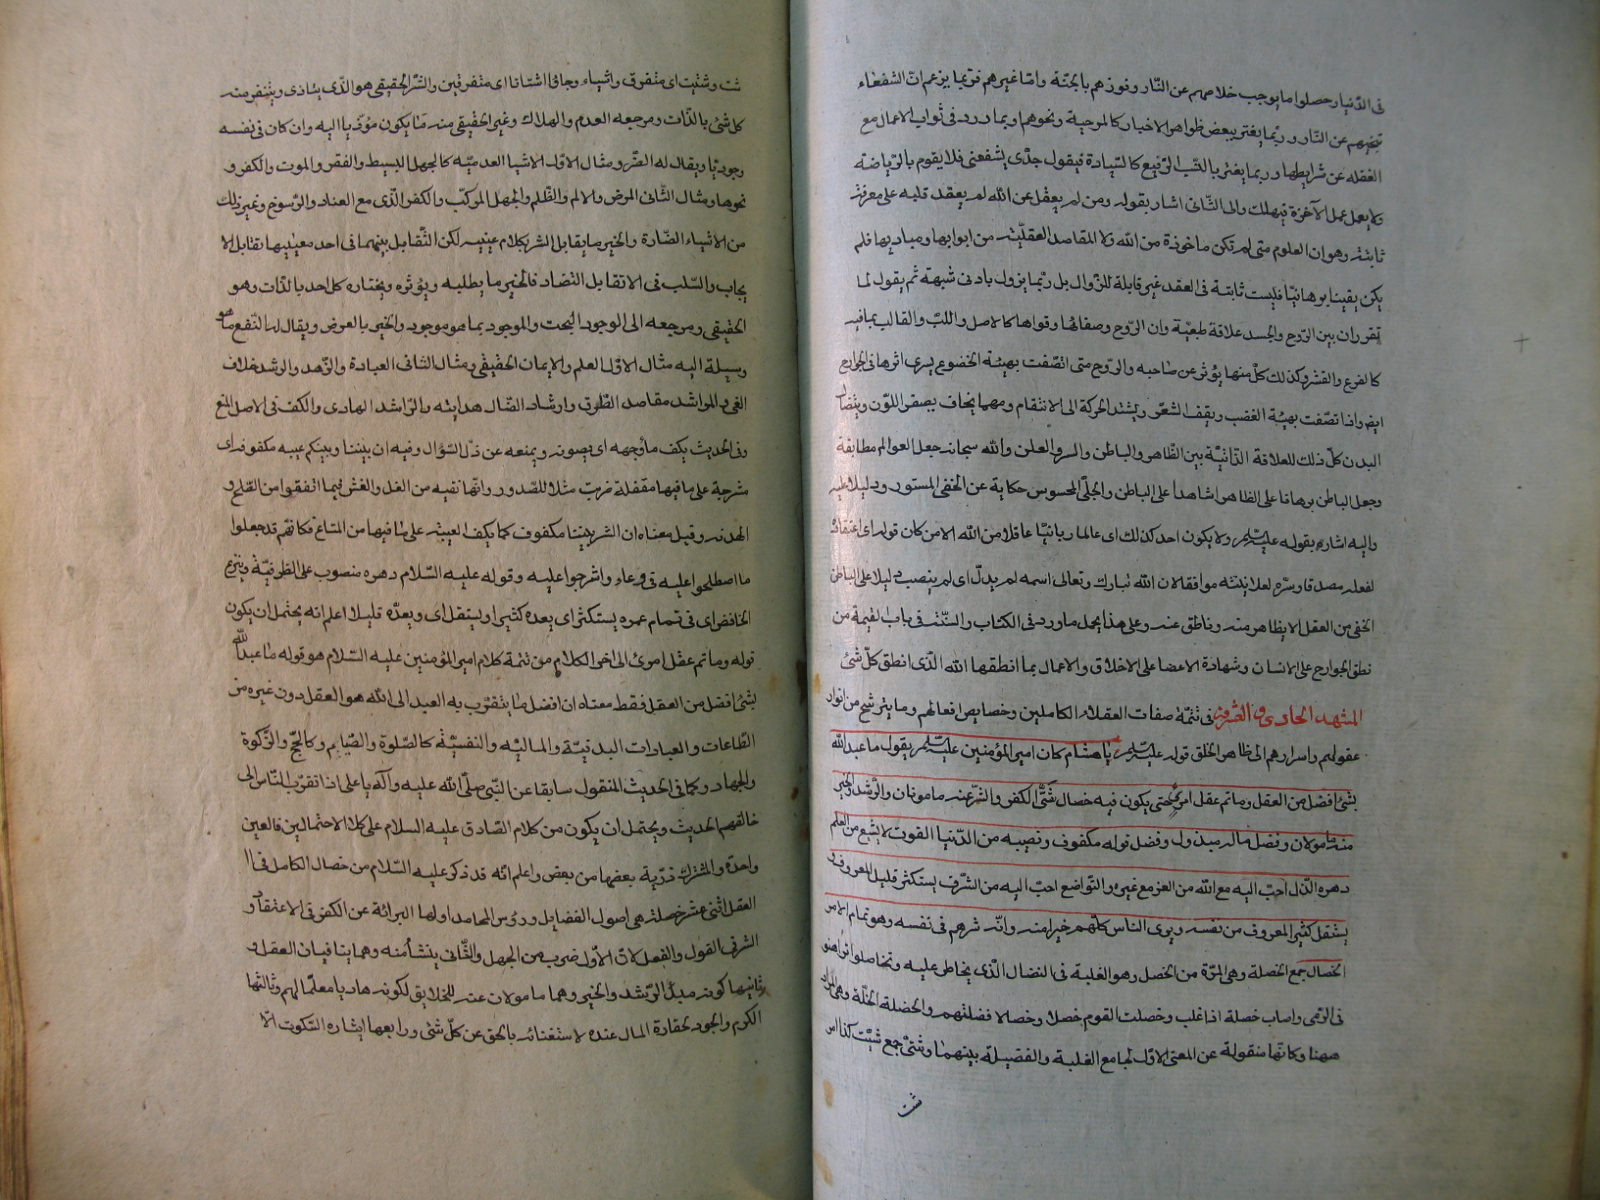 فى الدّنيا و حصلوا ما يوجب خلاصهم عن النّار و فوزهم بالجنة وامّا غيرهم فربّما يزعم انّ الشفعاء
عن النّار و ربّما يغتر ببعض ظواهر الاخبار كالمرجية و نحوهم وبما ورد فى ثواب الاعمال مع
الغفله عن شرايطها و ربما يغتر بالنّسب الرّفيع كالسّيادة فيقول جدّى يشفعنى فلا يقوم بالرّياضة
ولا يعمل عمل الآخرة فيهلك والى الثّانى اشار بقوله ومن لم يعقل عن الله لم يعقد قلبه على معرفة
ثابتة وهو ان العلوم متى لم تكن ماخوذة من الله ولا المقاصد العقليّة من ابوابها ومباديها فلم
يكن يقينا برهانيّا فليست ثابتة فى العقد غير قابلة للزّوال بل ربّما يزول بادنى شبهة ثم يقول لما
تقرر ان بين الرّوح والجسد علاقة طبعيّة وان الرّوح وصفاتها وقواها كالاصل واللبّ والقالب بما فيه
كالفرع والقشر وكذلك كلّ منها يؤثر عن صاحبه والرّوح متى اتّصفت بهيئة الخضوع يسرى اثرها فى الجوارح
ايضا واذا تصّفت بهيئة الغضب ويقف الشّعر ويشتد الحركة الى الانتقام ومهما يخاف يصفر اللّون ويتضاءل
البدن كلّ ذلك للعلاقة الذّاتيّة بين الظّاهر والباطن والسر والعلن والله سبحانه جعل العوالم مطابقة
وجعل الباطن برهانا على الظاهر شاهدا على الباطن والجلّى المحسوس حكاية عن الخفى المستور ودليلا عليه
واليه اشار بقوله عليه السّلم ولا يكون احد كذلك اى عالما ربانيّا عاقلا من الله الا من كان قوله اى اعتقاده
لفعله مصدقا وسرّه لعلانيته موافقا لان الله تبارك وتعالى اسمه لم يدلّ اى لم ينصب دليلا على الباطن
الخفى من العقل الا بظاهر منه وناطق عنه وعلى هذا يحمل ما ورد فى الكتاب والسنّة فى باب القيمة من
نطق الجوارح على الانسان وشهادة الاعضا على الاخلاق والاعمال بما انطقها الله الّذى انطق كلّ شئ
المشهد الحادى والعشرون فى تتمّة صفات العقلاء الكاملين وخصايص افعالهم وما يترشح من انوار
عقولهم واسرارهم الى ظاهر الخلق قوله عليه السّلم يا هشام كان امير المؤمنين عليه السّلم يقول ما عبد الله
بشئ افضل من العقل وما تم عقل امرئ حتى يكون فيه خصال شتّى الكفر والشّر عنه مامونان والرّشد والخير
منه مامولان وفضل ماله مبذول وفضل قوله مكفوف ونصيبه من الدّنيا القوت لا يشبع من العلم
دهره الذّل احبّ اليه مع الله من العز مع غيره والتّواضع احبّ اليه من الشّرف يستكثر قليل المعروف و
يستقل كثير المعروف من نفسه ويرى الناس كلّهم خيرا منه وانّه شرهم فى نفسه وهو تمام الامر
الخصال جمع الخصلة وهى المرّة من الخصل وهو الغلبة فى النضال الّذى يخاطر عليه وتخاصلوا تراهنوا
فى الرّمى واصاب خصلة اذا غلب وخصلت القوم خصلا وخصالا فضلتهم والخصلة الخلّة وهى المراد
ههنا وكانّها منقولة عن المعنى الاول لجامع الغلبة والفضيلة بينهما وشتّى جمع شتيت كذا امر
شت
شت وشتيت اى متفرق واشياء وجاؤا اشتاتا اى متفرقين والشّر الحقيقى هو الّذى يتاذى ويتنفر منه
كل شئ بالذّات ومرجعه العدم والهلاك وغير الحقيقى منه ما يكون مؤدّيا اليه وان كان فى نفسه
وجوديّا ويقال له الضّر ومثال الاول الاشيا العدميّه كالجهل البسيط والفقر والموت والكفر و
نحوها ومثال الثّانى المرض والالم والظّلم والجهل المركّب والكفر الّذى مع العناد والرّسوخ وغير ذلك
من الاشياء الضّارة والخير ما يقابل الشر بكلام عينيه لكن التّقابل بينهما فى احد معنييها تقابل الا
يجاب والسّلب فى الا تقابل التضاد فالخير ما يطلبه ويؤثره ويختاره كل احد بالذّات وهو
الحقيقى ومرجعه الى الوجود البحت والموجود بما هو موجود والخير بالعرض ويقال له النّفع ما هو
وسيلة اليه مثال الاوّل العلم والايمان الحقيقى ومثال الثانى العبادة والزّهد والرشد خلاف
الغى والمراشد مقاصد الطّرق وارشاد الضّال هدايته والرّاشد الهادى والكف فى الاصل المنع
وفى الحديث يكف ماء وجهه اى يصونه ويمنعه عن ذلّ السّؤال وفيه ان بيننا وبينكم عيبه مكفوفه اى
مشرجة على ما فيها مقفلة ضربت مثلا للصّدور وانّها نقيه من الغل والغش فيما اتفقوا من الصّلح و
الهدنه وقيل معناه ان الشر بيننا مكفوف كما يكف العيبة على ما فيها من المتاع فكانّهم قد جعلوا
ما اصطلحوا عليه فى وعاء واشرجوا عليه وقوله عليه السّلام دهره منصوب على الظرفيّة وبنزع
الخافض اى فى تمام عمره يستكثر اى يعده كثيرا ويستقل اى ويعدّه قليلا اعلم انه يحتمل ان يكون
قوله وما تم عقل امرئ الى اخر الكلام من تتمة كلام امير المؤمنين عليه السّلام هو قوله ما عبد الله
بشئ افضل من العقل فقط معناه ان افضل ما يتقرّب به العبد الى الله هو العقل دون غيره من
الطّاعات والعبادات البدنيّة والماليّه والنفسيّة كالصّلوة والصّيام وكالحجّ والزّكوة
والجهاد وكما فى الحديث المنقول سابقا عن النّبى صلّى الله عليه وآله يا على اذا تقرّب النّاس الى
خالقهم الحديث ويحتمل ان يكون من كلام الصّادق عليه السلام على كلا الاحتمالين فالعين
واحدة والمشرك ذرّية بعضها من بعض واعلم انّه قد ذكر عليه السّلام من خصال الكامل فى ال
العقل اثنى عشر خصلة هى اصول الفضايل ورؤس المحامد اولها البرائة عن الكفر فى الاعتقاد و
الشر فى القول والفعل لانّ الاوّل ضرب من الجهل والثّانى ينشأ منه وهما ينافيان العقل و
ثانيها كونه مبدأ الرّشد والخير وهما مامولان عنه للخلايق لكونه هاديا معلّما لهم وثالثها
الكرم والجود لحقارة المال عنده لاستغنائه بالحق عن كلّ شئ ورابعها ايثاره السّكوت الّا